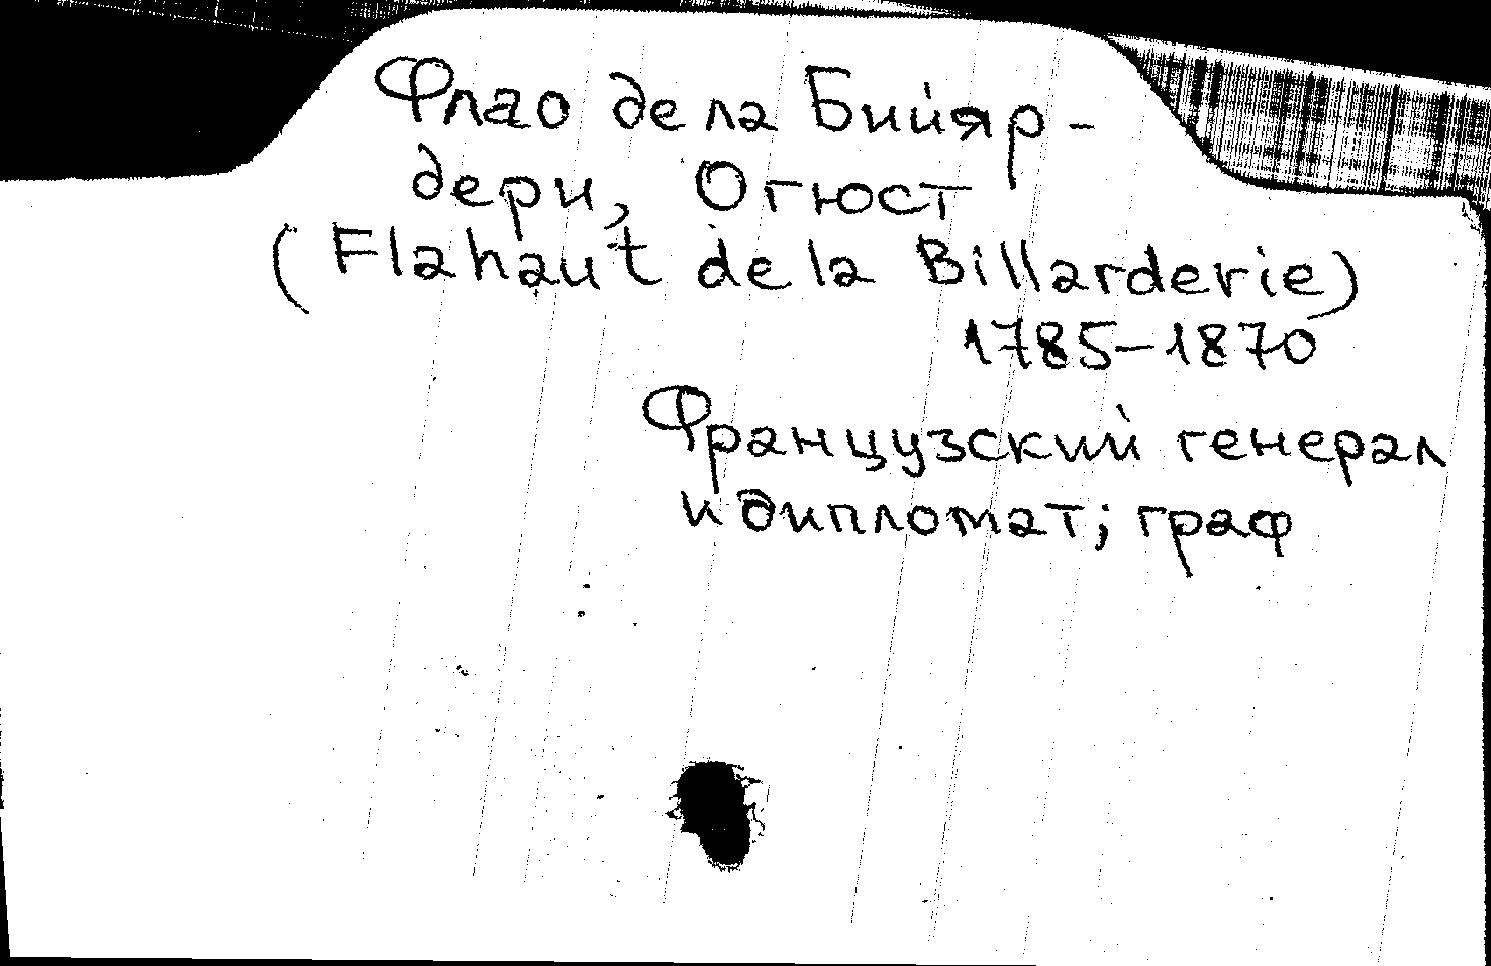 Флао де ла Бийяр-
дери, Огюст
(Flahaut de la Billarderie)
1785–1870
Французский генерал
и дипломат; граф